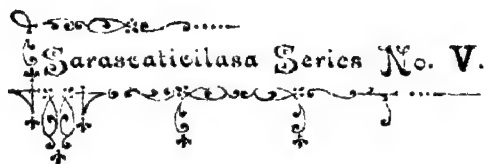 Sarasvativilasa Series No. V.